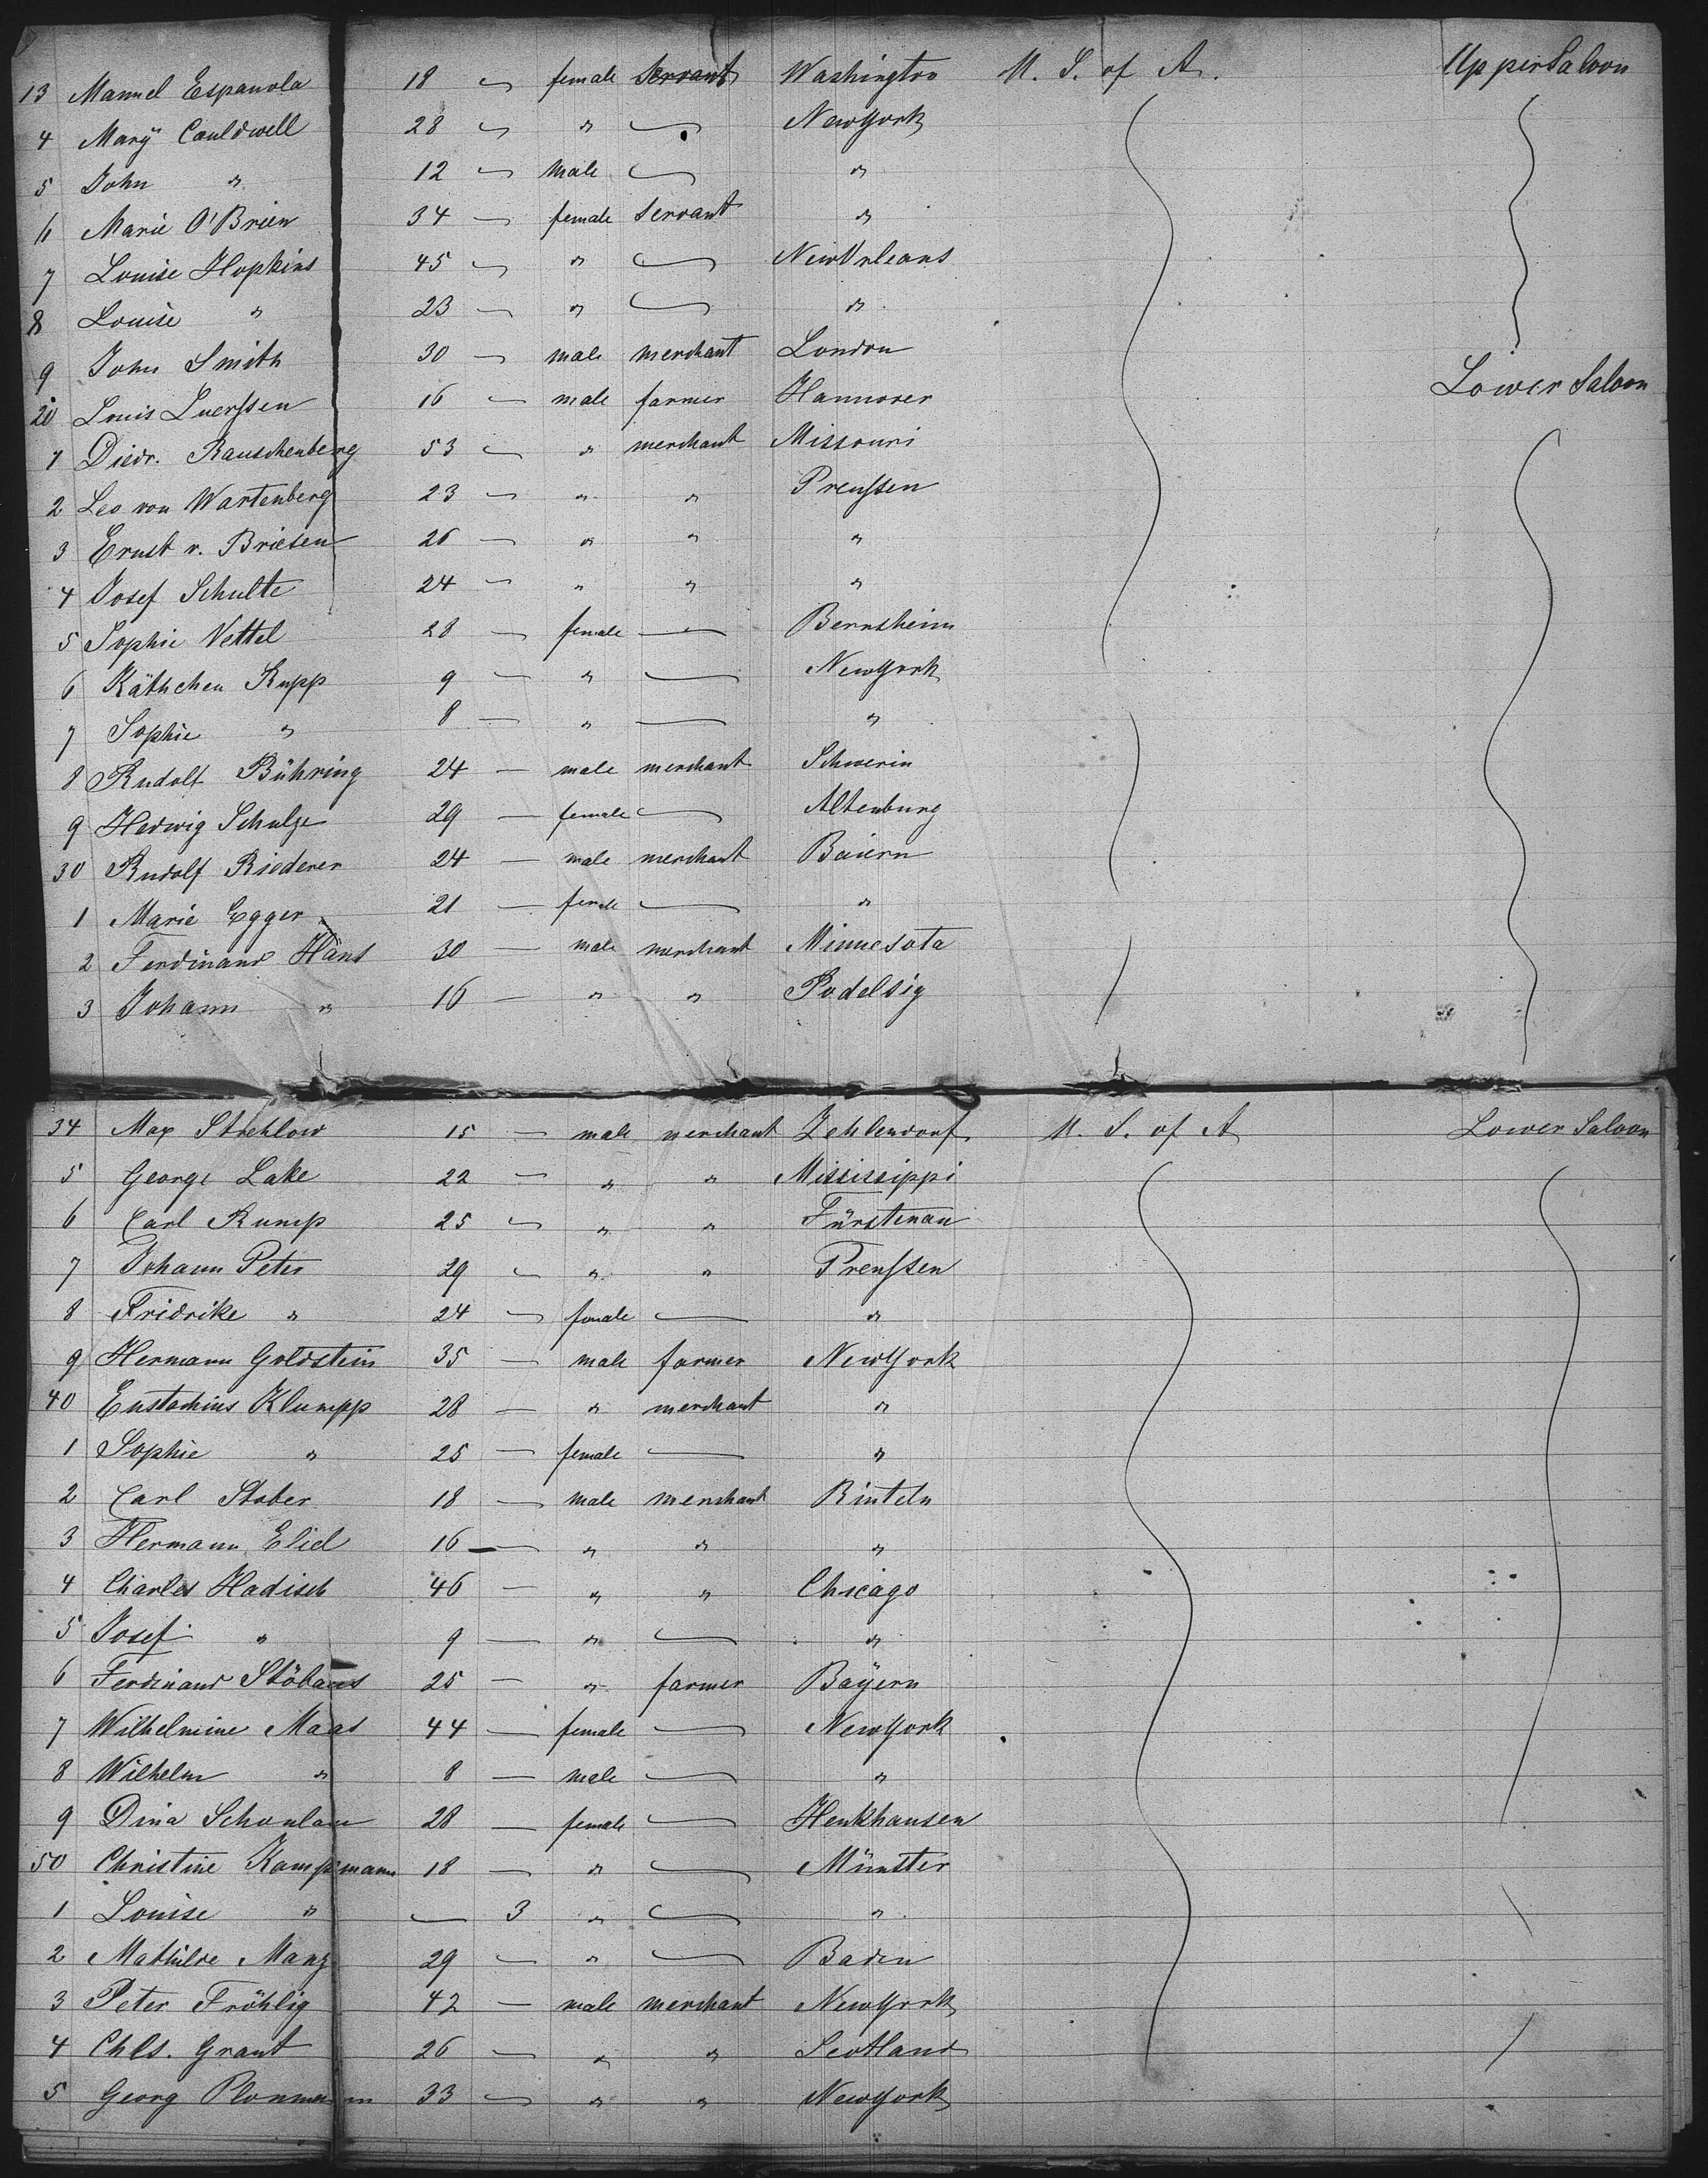 13 Manuel Espanola 18 — female Servant Washington U. S. of A. Upper Saloon
4 Mary Cauldwell 28 — " — NewYork
5 John " 12 — male — "
6 Marie O'Brien 34 — female servant "
7 Louise Hopkins 45 — " — NewOrleans
8 Louise " 23 — " — "
9 John Smith 30 — male merchant London
20 Louis Luerssen 16 — male farmer Hannover Lower Saloon
1 Diedr. Rauschenberg 53 — " merchant Missouri
2 Leo von Wartenberg 23 — " " Preussen
3 Ernst v. Briesen 26 — " " "
4 Josef Schulte 24 — " " "
5 Sophie Vettel 28 — female — Bernsheim
6 Käthchen Rupp 9 — " — NewYork
7 Sophie " 8 — " — "
8 Rudolf Bühring 24 — male merchant Schwerin
9 Hedwig Schulze 29 — female — Altenburg
30 Rudolf Riederer 24 — male merchant Baiern
1 Marie Egger 21 — female — "
2 Ferdinand Häns 30 — male merchant Minnesota
3 Johann " 16 — " " Podelsig
34 Max Strehlow 15 — male merchant Zehlendorf U. S. of A Lower Saloon
5 George Lake 22 — " " Mississippi
6 Carl Rump 25 — " " Fürstenau
7 Johann Peter 29 — " " Preussen
8 Fridrike " 24 — female — "
9 Hermann Goldstein 35 — male farmer NewYork
40 Eustachius Klumpp 28 — " merchant "
1 Sophie " 25 — female — "
2 Carl Stober 18 — male merchant Rinteln
3 Hermann Eliel 16 — " " "
4 Charles Hadisch 46 — " " Chicago
5 Josef " 9 — " — "
6 Ferdinand 25 — " farmer Bayern
7 Wilhelmine Maas 44 — female — NewYork
8 Wilhelm " 8 — male — "
9 Dina Schonlau 28 — female — Henkhausen
50 Christine Kampmann 18 — " — Münster
1 Louise " — 3 " — "
2 Mathilde Manz 29 — " — Baden
3 Peter Fröhlig 42 — male merchant NewYork
4 Chls. Grant 26 — " " Scotland
5 Georg 33 — " " NewYork